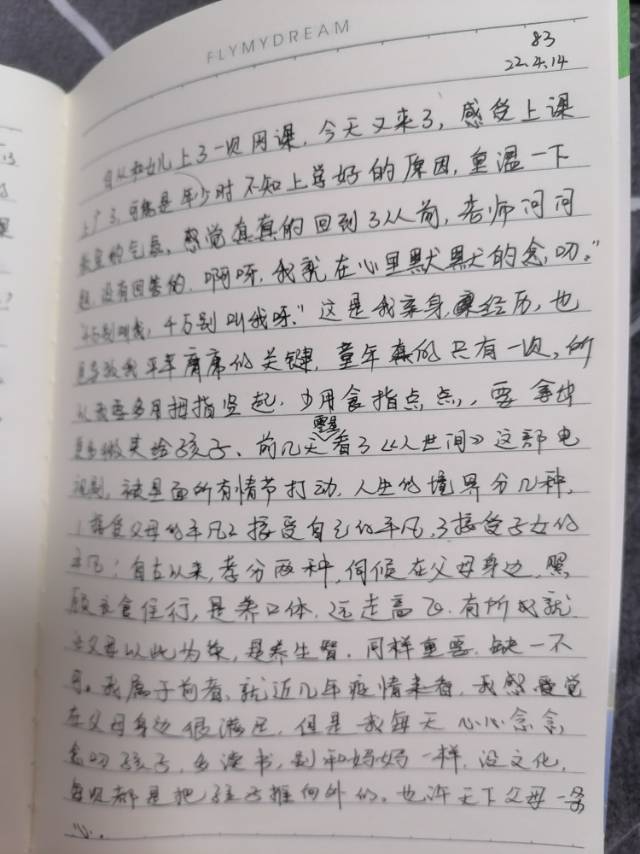 FLYMYDREAM
83
22.4.14
自从和女儿上了一次网课，今天又来了，感受上课
上了，可能是年少时不知上学好的原因，重温一下
教室的气息，感觉真真的回到了从前，老师问问
题，没有回答的，啊呀，我就在心里默默的念叨。"
千万别叫我，千万别叫我呀。"这是我亲身经历，也
是导致我平庸的关键，童年真的只有一次，所
从我要多用拇指竖起，少用食指点点，要拿出
更多微笑给孩子、前几天看了《人世间》这部电
重复
视剧，被里面所有情节打动，人生的境界分几种，
1接受父母的平凡2接受自己的平凡，3接受子女的
平凡；自古以来，孝分两种，伺候在父母身边，照
顾衣食住行，是养口体，远走高飞，有所成就
父母以此为荣，是养，同样重要，缺一不
可。我属于前者、就近几年疫情来看，我感觉
在父母身边很满足，但是我每天心心念念
念叨孩子，多读书，别和妈妈一样，没文化，
每次都是把孩子推向外的。也许天下父母一条
心。